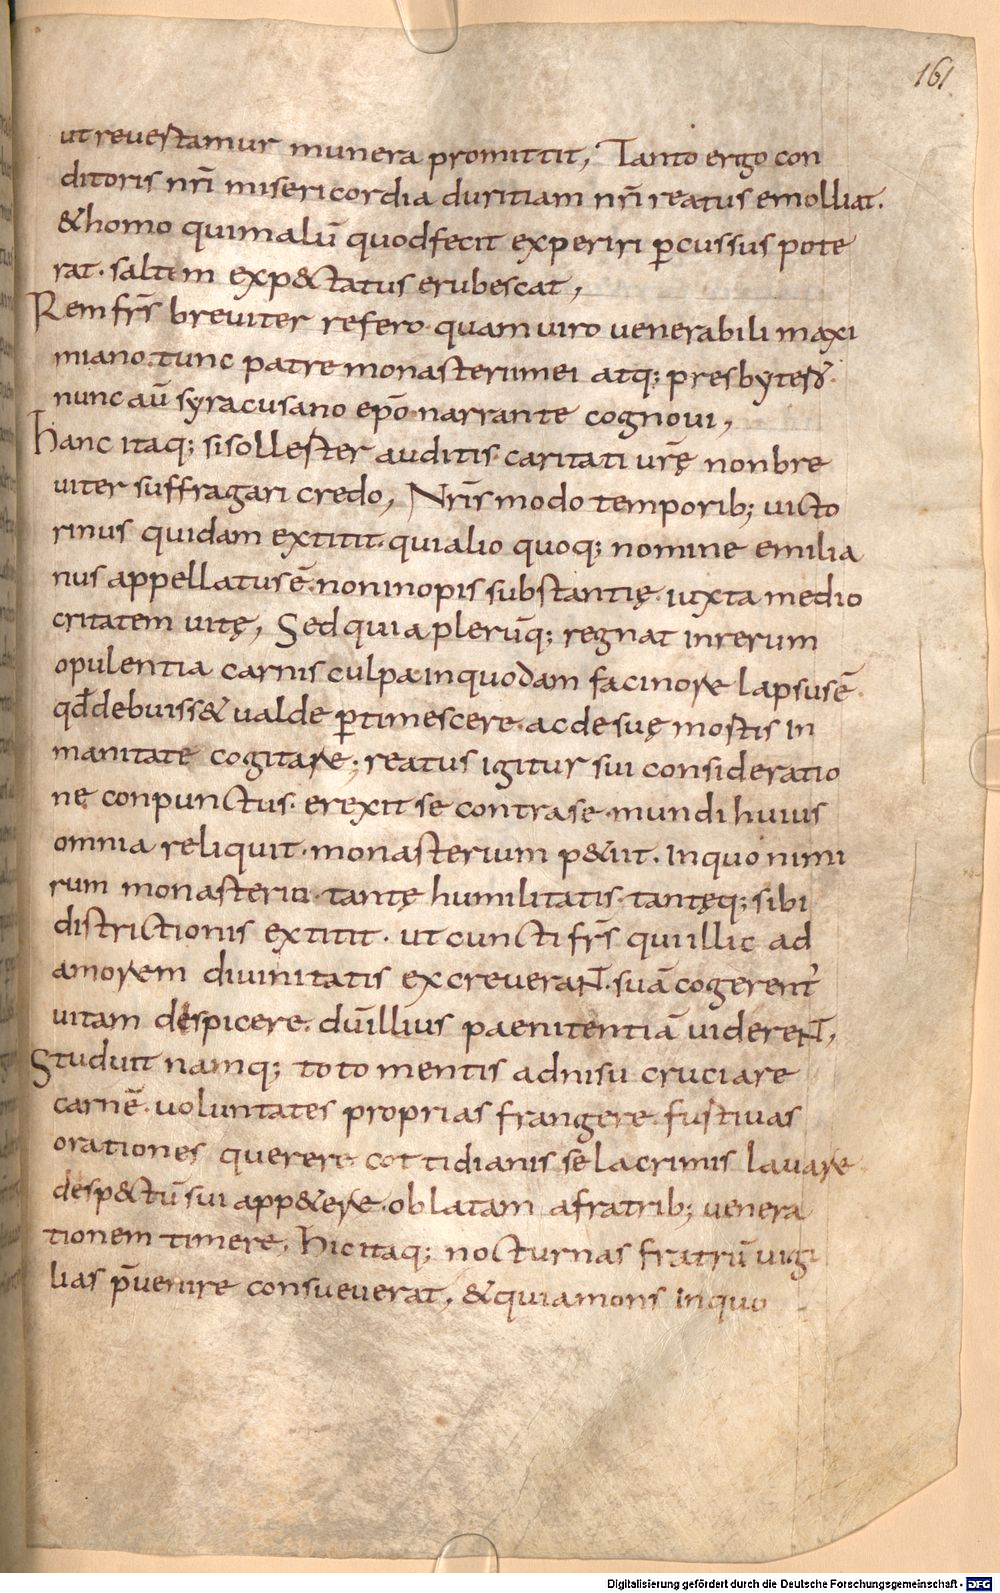 161
ut revestamur munera promittit, Tanto ergo con
ditoris nr̄i misericordia duritiam nr̄i reatus emolliat.
&homo qui malū quod fecit experiri ꝑcussus pote
rat· saltim exp&ctatus erubescat,
Rem frs̄ breviter refero· quam viro venerabili maxi
miano· tunc patre monasterii mei atq; presbytero·
nunc aū syracusano epō· narrante cognovi,
hanc itaq; si sollester auditis· caritati vrę̄ non bre
viter suffragari credo, Nr̄is modo temporib; victo
rinus quidam extitit· qui alio quoq; nomine emilia
nus appellatus ē· non inopis substantię· iuxta medio
critatem vitę, Sed quia plerūq; regnat in rerum
opulentia carnis culpa· in quodam facinore lapsus ē·
qd̄ debuiss& valde ꝑtimescere· ac de suę mostis in
manitate cogitare; reatus igitur sui consideratio
nę conpunctus· erexit se contra se· mundi huius
omnia reliquit· monasterium p&iit. In quo nimi
rum monasterio· tantę humilitatis· tantęq; sibi
districtionis extitit· ut cuncti frs̄ qui illic ad
amorem divinitatis excreverant· suā cogerent᷑
vitam despicere· dū illius paenitentiā viderent,
Studuit namq; toto mentis adnisu cruciare
carnē· voluntates proprias frangere· fustivas
orationes querere· cottidianis se lacrimis lavare
desp&ctū sui app&ere· oblatam a fratrib; venera
tionem timere. hic itaq; nocturnas fratrū vigi
lias p̄venire consueverat, & quia mons in quo
Digitalisierung gefördert durch die Deutsche Forschungsgemeinschaft - DFG